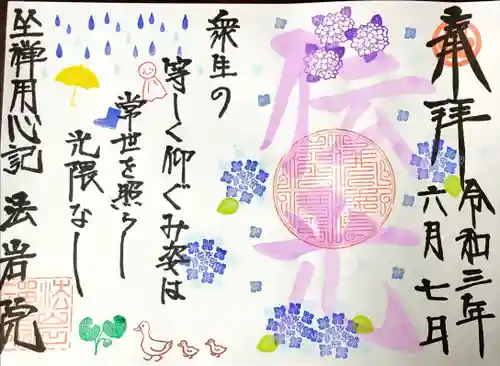 奉拝
令和三年
六月七日
伝示
衆生の
等しく仰ぐみ姿は
常世を照らし
光隈なし
坐禅用心記
法岩院